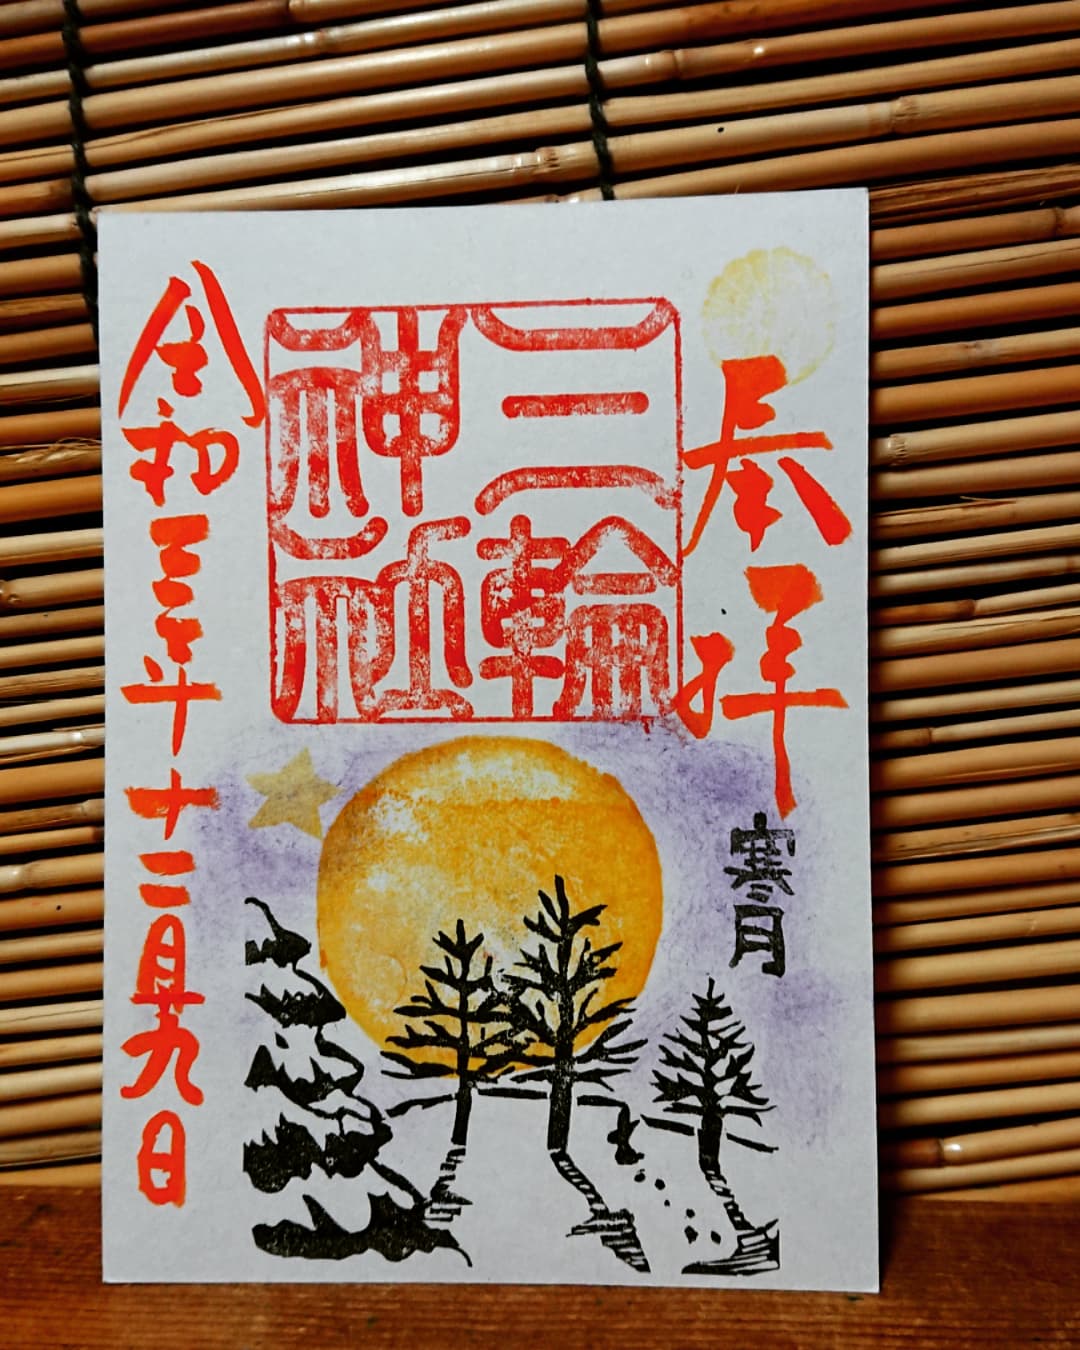 奉拝
寒月
三輪
神社
令和三年十二月九日